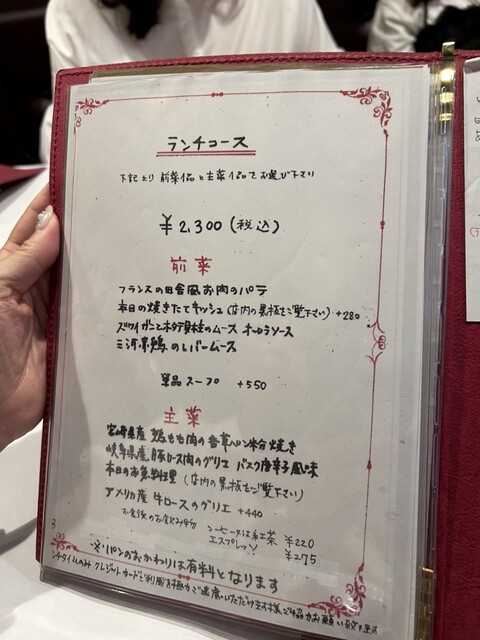 ランチコース
下記より 前菜1品と主菜1品をお選び下さい
¥2,300(税込)
前菜
フランスの田舎風お肉のパテ
本日の焼きたてキッシュ(店内の黒板をご覧下さい) +280
ズワイガニとホタテ貝柱のムース オーロラソース
三河赤鶏のレバームース
単品スープ +550
主菜
宮崎県産 鶏もも肉の香草パン粉焼き
岐阜県産 豚ロース肉のグリエ バスク唐辛子風味
本日のお魚料理 (店内の黒板をご覧下さい)
アメリカ産 牛ロースのグリエ +440
お食後のお飲み物 コーヒー又は紅茶 ¥220
エスプレッソ ¥275
※パンのおかわりは有料となります
ンチタイムのみ クレジットカードご利用を極力ご遠慮いただけます様ご協力お願い致します